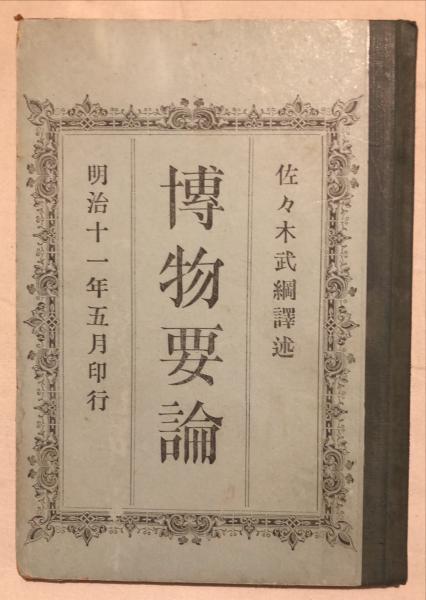 佐々木武綱譯述
博物要論
明治十一年五月印行